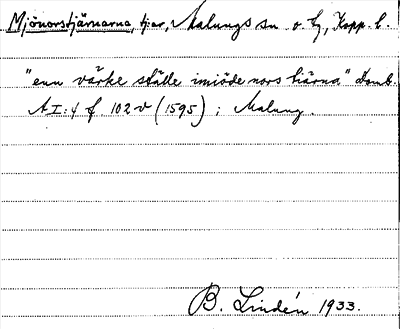 Mjönorstjärnarna, tjar, Malungs sn o. tg, Kopp. l.
"enn värke ställe imiöde nors tiärna" Domb.
A I:4 f 102 v (1595); Malung.
B. Lindén 1933.